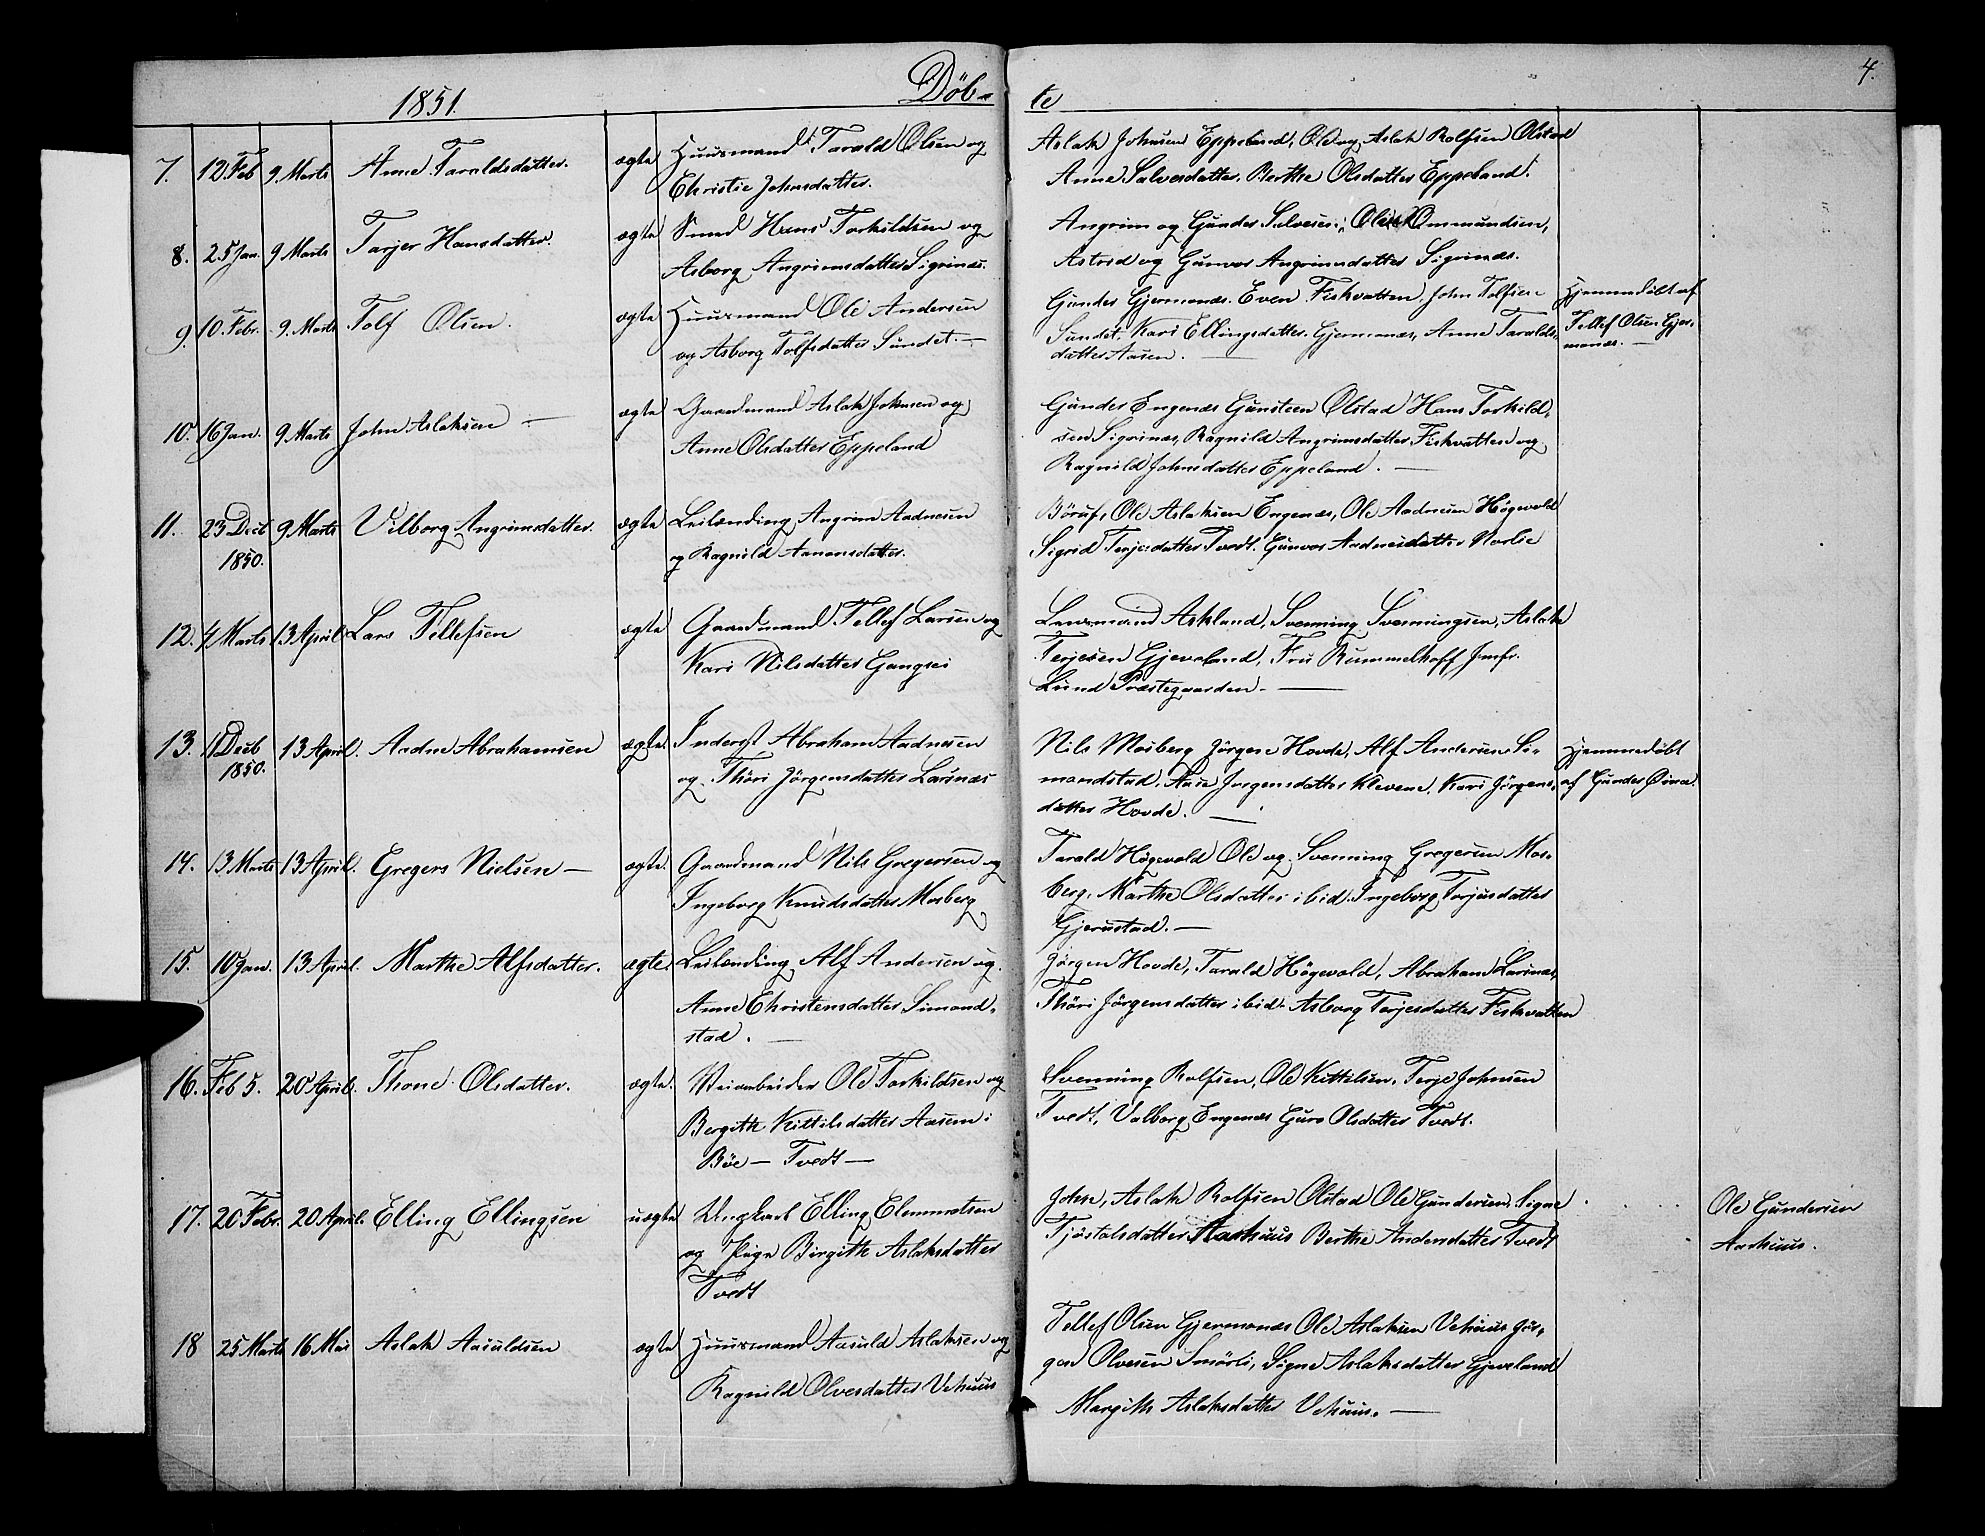 1851.
Döb-
te
4.
7. 12. Feb 9. Marts Anne Taraldsdatter. ægte Huusmand Tarald Olsen og
Christie Johnsdatter.
Aslak Johnsen Eppeland, Ole og Aslak Rolfsen Olstad
Anne Salvesdatter. Berthe Olsdatter Eppeland.
8. 25 Jan. 9 Marts Tarjer Hansdatter. ægte Smed Hans Torkildsen og
Asborg Angrimsdatter Sigrinæs.
Angrim og Gunder Salvesen, Ole Ommundsen,
Astrid og Gunvor Angrimsdatter Sigrinæs.
9. 10. Febr. 9. Marts Tolf Olsen. ægte Huusmand Ole Andersen
og Asborg Tolfsdatter Sundet. —
Gunder Gjermonæs. Even Fiskvatten. John Tolfsen
Sundet, Kari Ellingsdatter Gjermonæs, Anne Taralds-
datter Aasen. —
Hjemmedöbt af
Tellef Olsen Gjer-
monæs. —
10. 16 Jan. 9 Marts John Aslaksen — ægte Gaardmand Aslak Johnsen og
Anne Olsdatter Eppeland
Gunder Engenæs Gunsteen Olstad Hans Torkild-
sen Sigrinæs, Ragnild Angrimsdatter Fiskvatten og
Ragnild Johnsdatter Eppeland. —
11. 23 Decb 9 Marts Vilborg Angrimsdatter. ægte Leilænding Angrim Aadnesen
1850.
og Ragnild Aanonsdatter.
Ole Aslaksen Engenæs, Ole Aadnesen Högevold
Sigrid Terjesdatter Tvedt. Gunvor Aadnesdatter
12. 4 Marts 13 April Lars Tellefsen ægte Gaardmand Tellef Larsen og
Kari Nilsdatter Gangsei
Lensmand Askland, Svenning Svenningsen, Aslak
Terjesen Gjeveland, Fru Rummelhoff, Jmfr.
Lund Præstegaarden. —
13. 11 Decb 13 April. Aadne Abrahamsen ægte. Inderst Abraham Aadnesen
1850.
og Thöri Jörgensdatter Larinæs
Nils Mosberg Jörgen Hovde, Alf Andersen Si-
mondstad, Aase Jörgensdatter Klevene, Kari Jörgens-
datter Hovde. —
Hjemmedöbt
af Gunder
14. 13 Marts 13 April. Gregers Nielsen — ægte. Gaardmand Nils Gregersen og
Ingeborg Knudsdatter Mosberg
Tarald Högevold Ole og Svenning Gregersen Mos-
berg. Marthe Olsdatter ibid. Ingeborg Torjusdatter
Gjerustad. —
15. 10 Jan. 13 April. Marthe Alfsdatter. ægte. Leilænding Alf Andersen og
Anne Christensdatter Simond-
stad. —
Jörgen Hovde, Tarald Högevold, Abraham Larinæs,
Thöri Jörgensdatter ibid. Asborg Terjesdatter Fiskvatten
16. Feb 5. 20 April. Thone Olsdatter. ægte. Veiarbeider Ole Torkildsen og
Bergith Kittilsdatter Aasen i
Böe — Tvedt —
Svenning Rolfsen, Ole Kittilsen, Terje Johnsen
Tvedt, Valborg Engenæs Guro Olsdatter Tvedt.
17. 20 Febr. 20 April. Elling Ellingsen uægte Ungkarl Elling Clemmetsen
og Pige Birgith Aslaksdatter
Tvedt
John, Aslak Rolfsen Olstad Ole Gundersen, Signe
Tjöstolsdatter Aashuus Berthe Andersdatter Tvedt
Ole Gundersen
Aashuus.
18 25 Marts 16 Mai Aslak Aasuldsen ægte Huusmand Aasuld Aslaksen og
Ragnild Olvesdatter Vehuus
Tellef Olsen Gjermonæs Ole Aslaksen Vehuus Jör-
gen Olvesen Smörli, Signe Aslaksdatter Gjeveland
Margith Aslaksdatter Vehuus. —